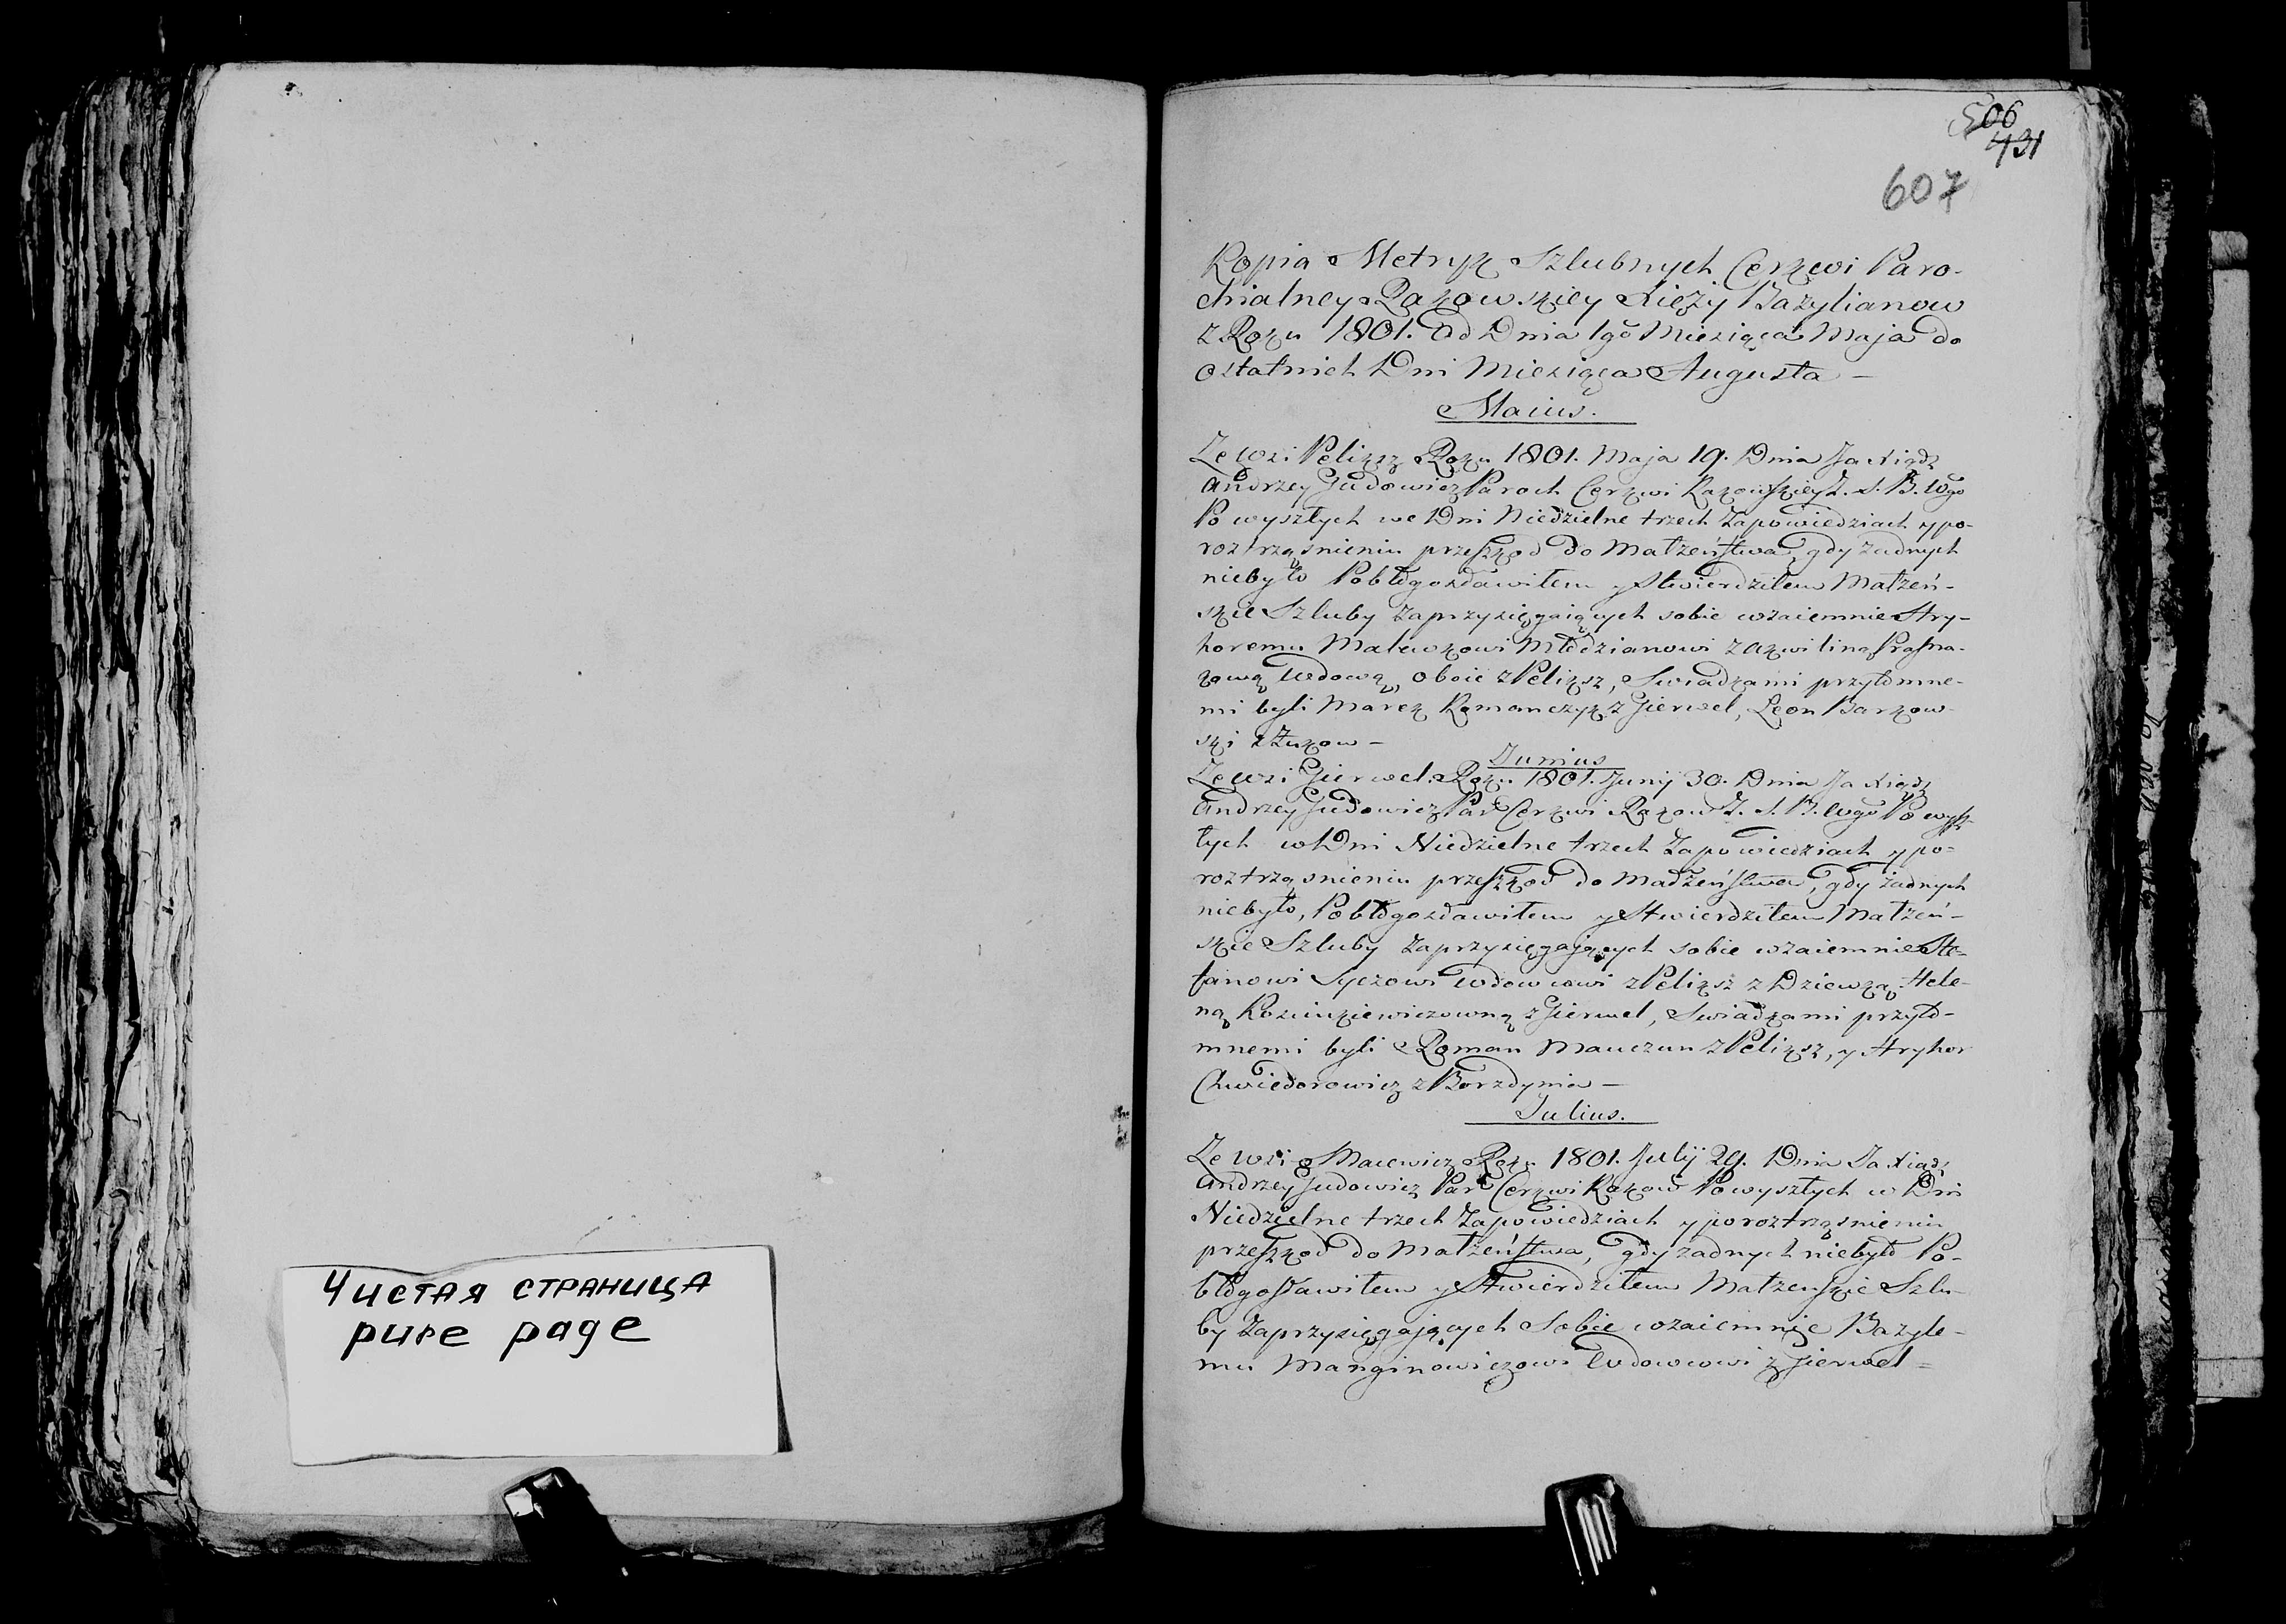 Чистая страница
pure page
506
431
607
Kopia Metryk Szlubnych Cerkwi Paro-
chialney Rakowskiey Xięży Bazylianow
z Roku 1801. Od Dnia 1go Miesiąca Maja do
ostatnich Dni Miesiąca Augusta —
Maius.
Ze Wsi Peliksz Roku 1801. Maja 19. Dnia Ja Xiądz
Andrzey Judowicz Paroch Cerkwi Rakowskiey Z. S. B. Wgo
Po wyszłych we Dni Niedzielne trzech Zapowiedziach y po-
roztrząsnieniu przeszkod do Małżeństwa, gdy żadnych
niebyło Pobłogosławiłem y Stwierdziłem Małżeń-
skie Szluby zaprzysięgaiących sobie wzaiemnie Hry-
horemu Malewkowi Młodzianowi z Akwiliną
kową Wdową, oboie z Peliksz, Swiadkami przytomne-
mi byli Marek Romanczyk z Gierwel, Leon Barkow-
ski z Żukow —
Junius
Ze Wsi Gierwel Roku 1801. Junij 30. Dnia Ja Xiądz
Andrzey Judowicz Par Cerkwi Rakow Z. S. B. Wgo Po wysz-
łych w Dni Niedzielne trzech Zapowiedziach y po-
roztrząsnieniu przeszkod do Madżeństwa, gdy żadnych
niebyło, Pobłogosławiłem y Stwierdziłem Małżeń-
skie Szluby zaprzysięgających sobie wzaiemnie Ste-
fanowi Syczowi Wdowcowi z Peliksz z Dziewką Hele-
ną z Gierwel, Swiadkami przyto-
mnemi byli Roman Mauczun z Peliksz, y Hryhor
Chwiedorowicz z Borzdynia —
Julius.
Ze Wsi Macewicz Roku 1801. Julij 29. Dnia Ja Xiądz
Andrzey Judowicz Par Cerkwi Rakow Po wyszłych w Dni
Niedzielne trzech Zapowiedziach y po roztrząsnieniu
przeszkod do Małżeństwa, gdy żadnych niebyło Po-
błogosławiłem y Stwierdziłem Małżenskie Szlu-
by Zaprzysięgających Sobie wzaiemnie Bazyle-
mu Manginowiczowi Wdowcowi z Gierwel =